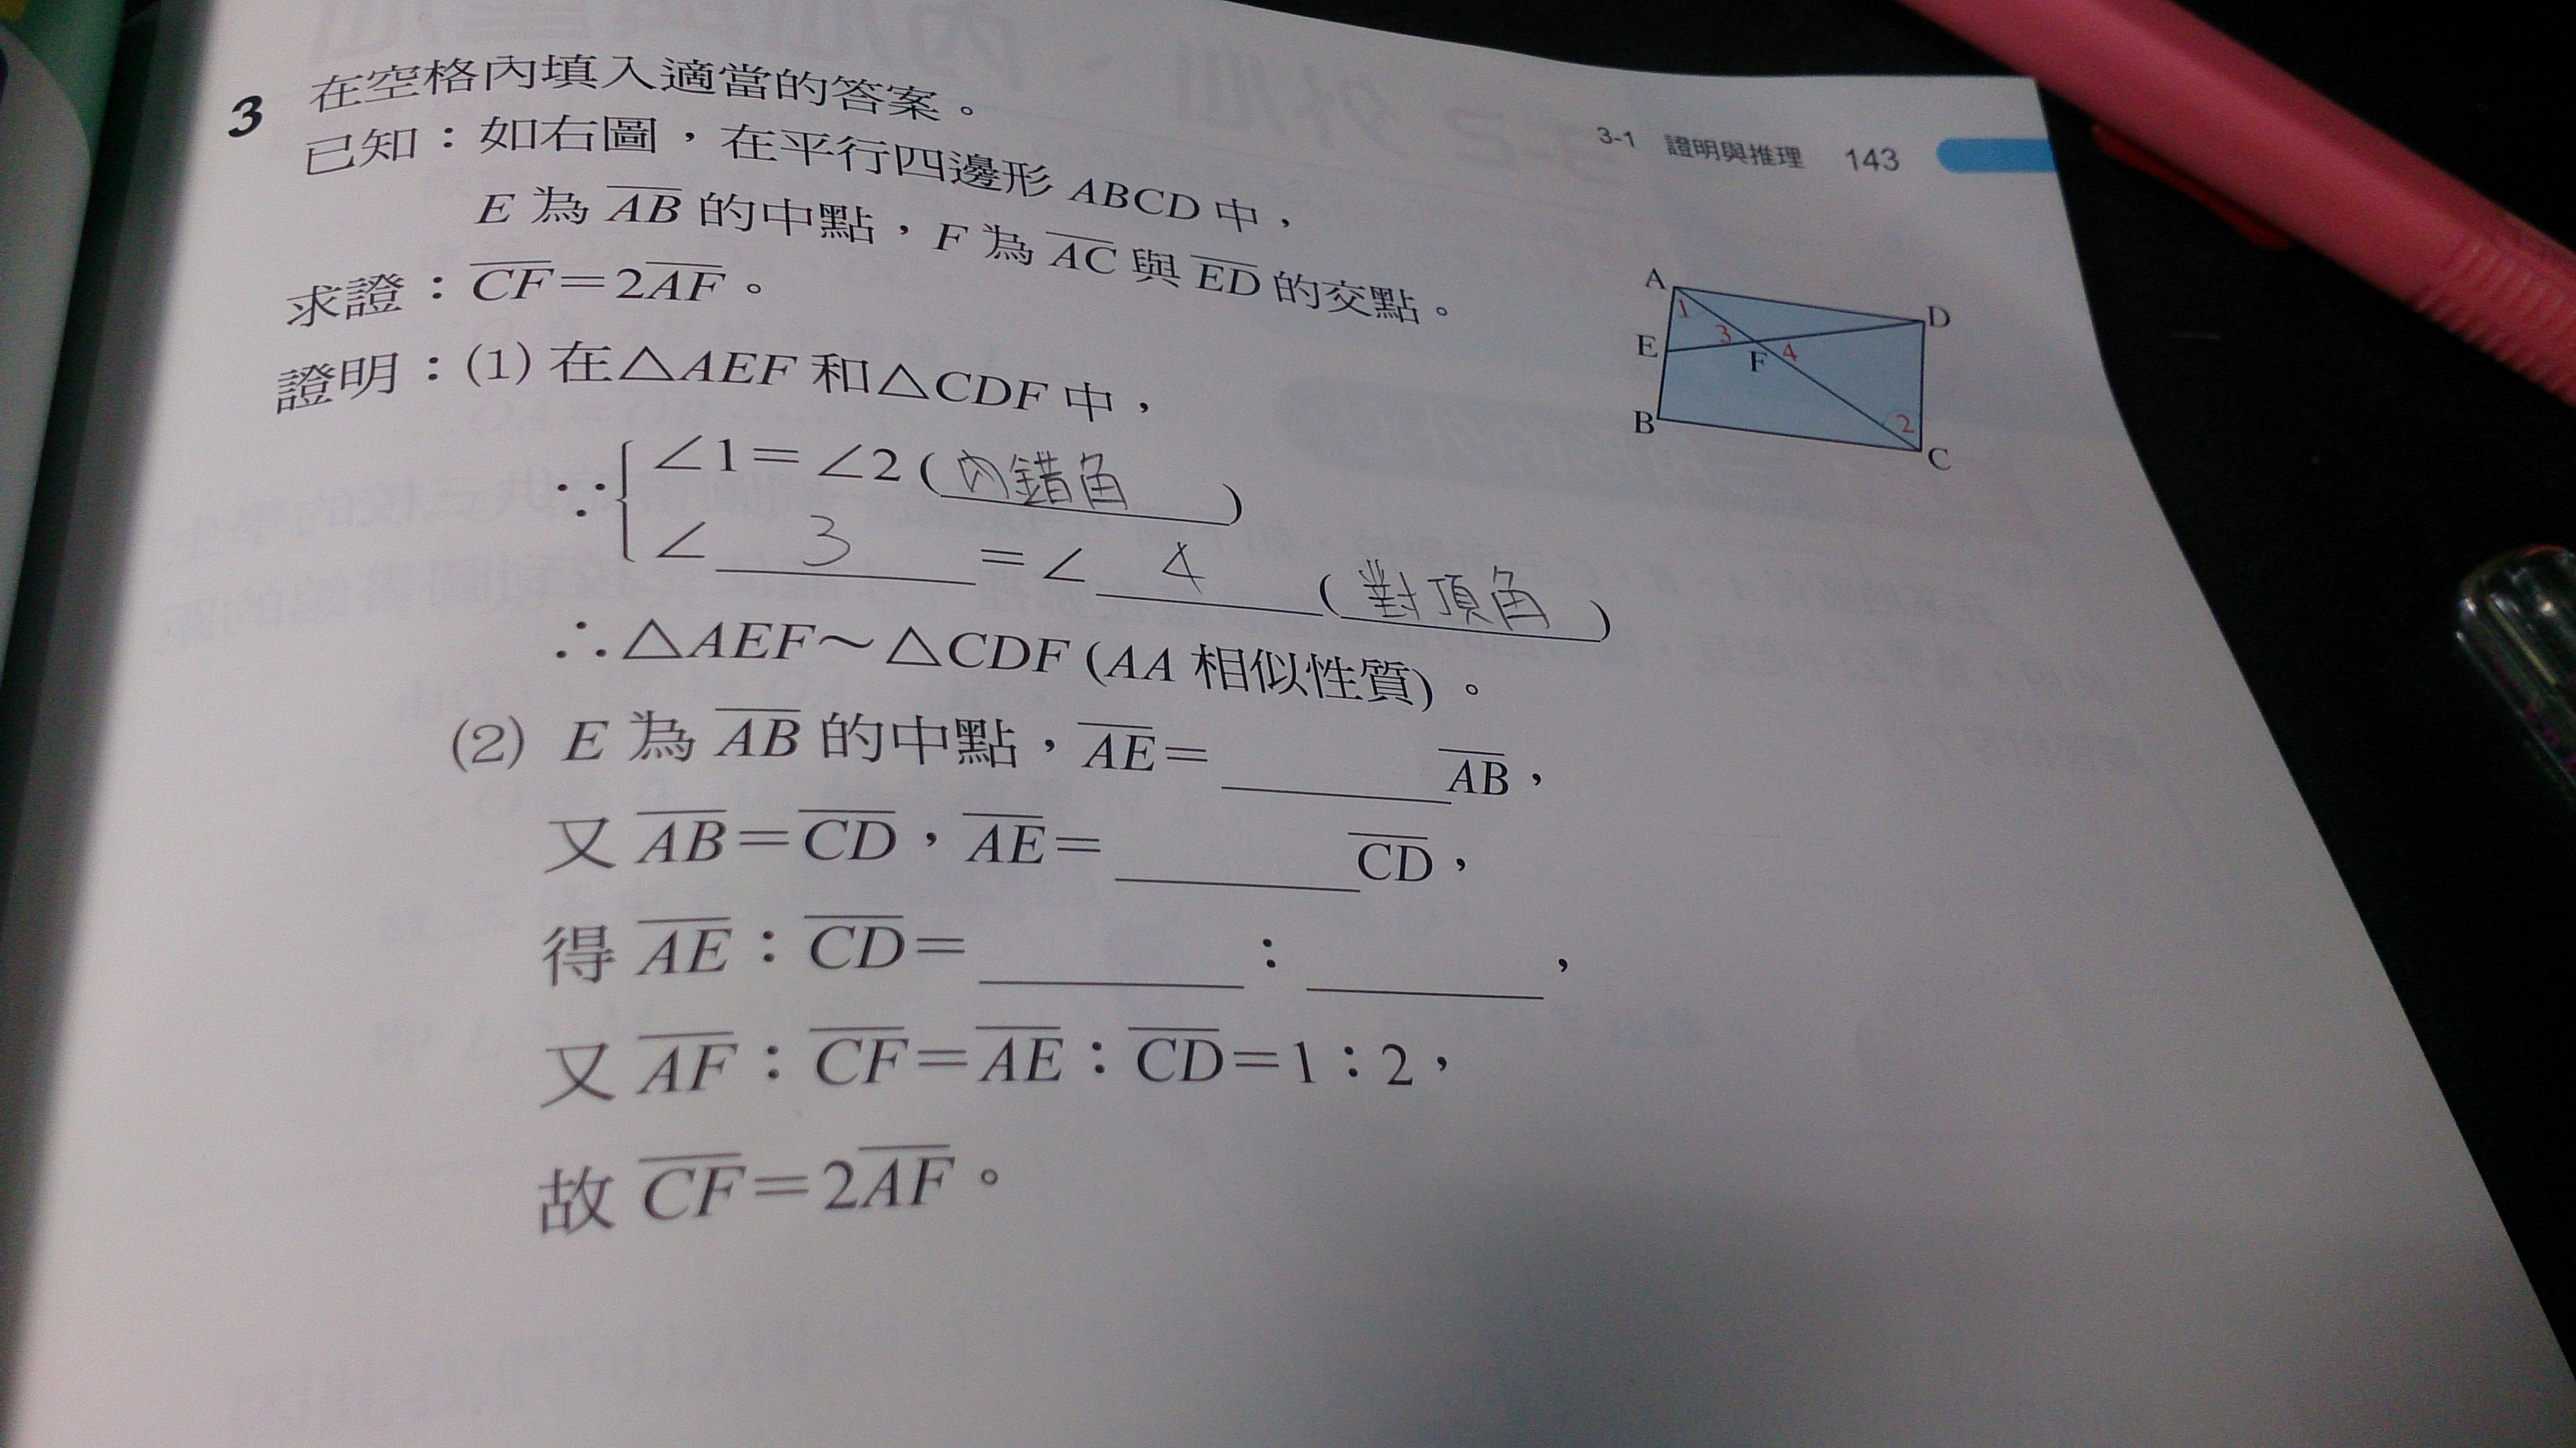 3-1 證明與推理 143
3 在空格內填入適當的答案。
已知：如右圖，在平行四邊形 ABCD 中，
E 為 AB 的中點，F 為 AC 與 ED 的交點。
求證：CF＝2AF。
證明：(1) 在△AEF 和△CDF 中，
∵{ ∠1＝∠2 (內錯角)
∠ 3 ＝∠ 4 (對頂角)
∴△AEF～△CDF (AA 相似性質)。
(2) E 為 AB 的中點，AE＝______AB，
又 AB＝CD，AE＝______CD，
得 AE：CD＝______：______，
又 AF：CF＝AE：CD＝1：2，
故 CF＝2AF。
A
1
D
3
E
F
4
B
2
C